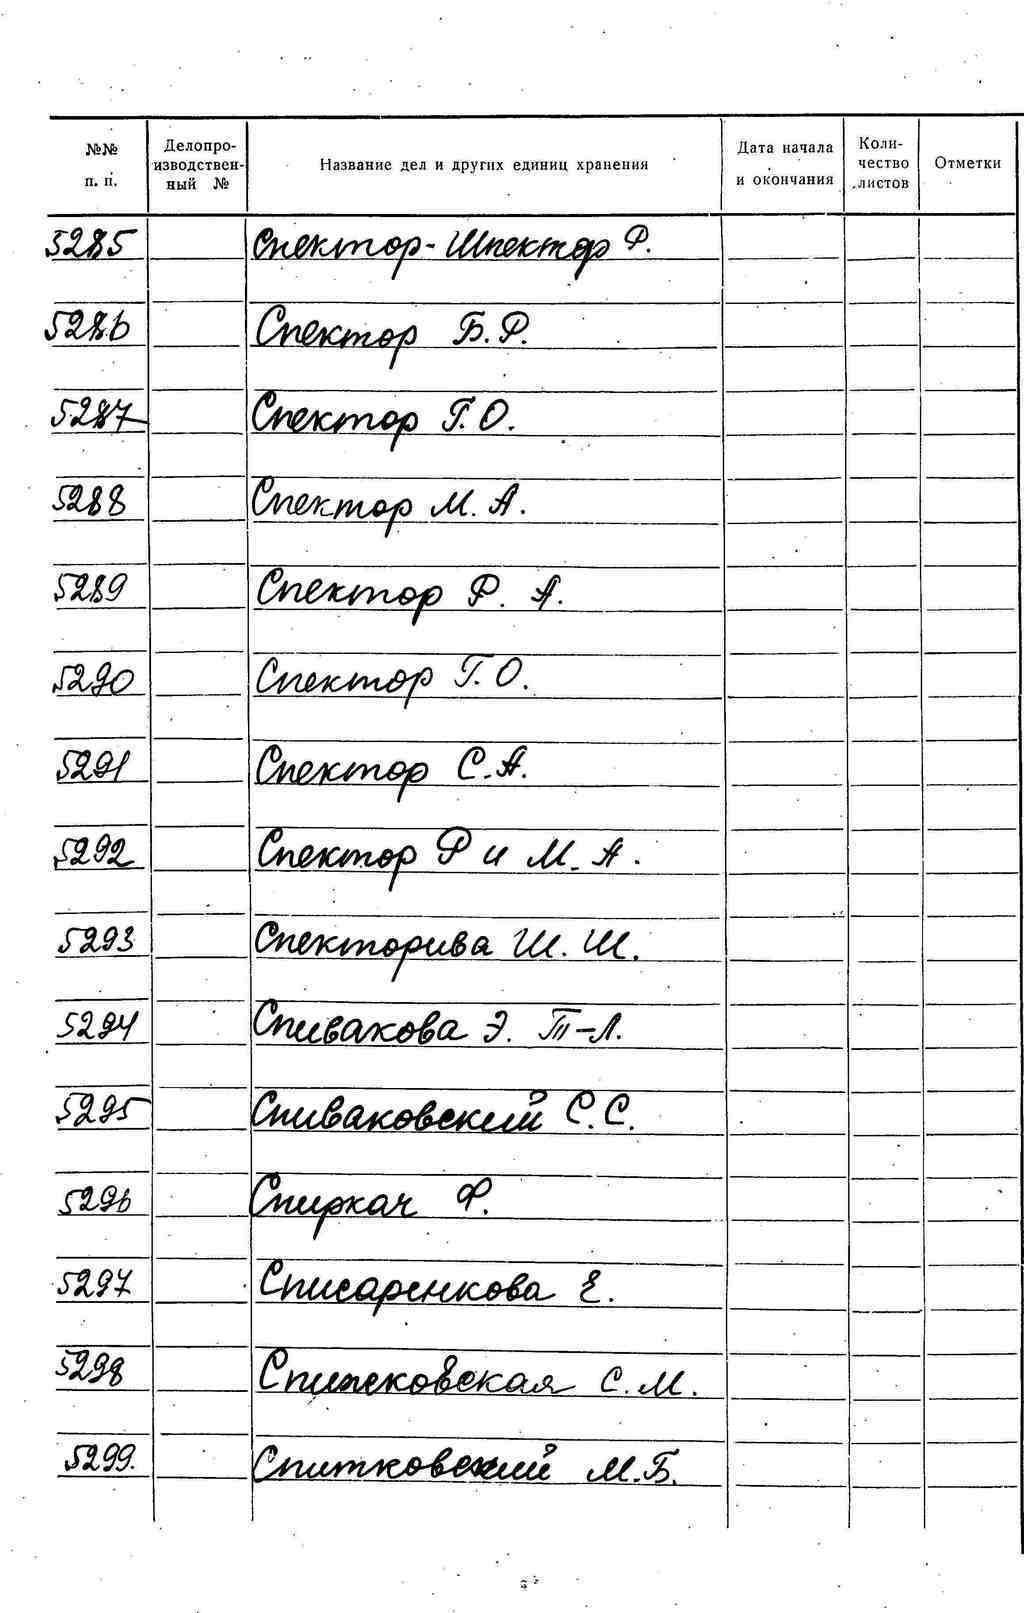 №№ п. п. Делопроизводственный № Название дел и других единиц хранения Дата начала и окончания Количество листов Отметки
5285 Спектор-Шпектор Ф.
5286 Спектор Б. Р.
5287 Спектор Г. О.
5288 Спектор М. А.
5289 Спектор Р. А.
5290 Спектор Г. О.
5291 Спектор С. А.
5292 Спектор Р и М. А.
5293 Спекторива Ш. Ш.
5294 Спивакова Э. Т-Л.
5295 Спиваковский С. С.
5296 Спиркач Ф.
5297 Списаренкова Е.
5298 С. М.
5299. Спитковский М. Б.